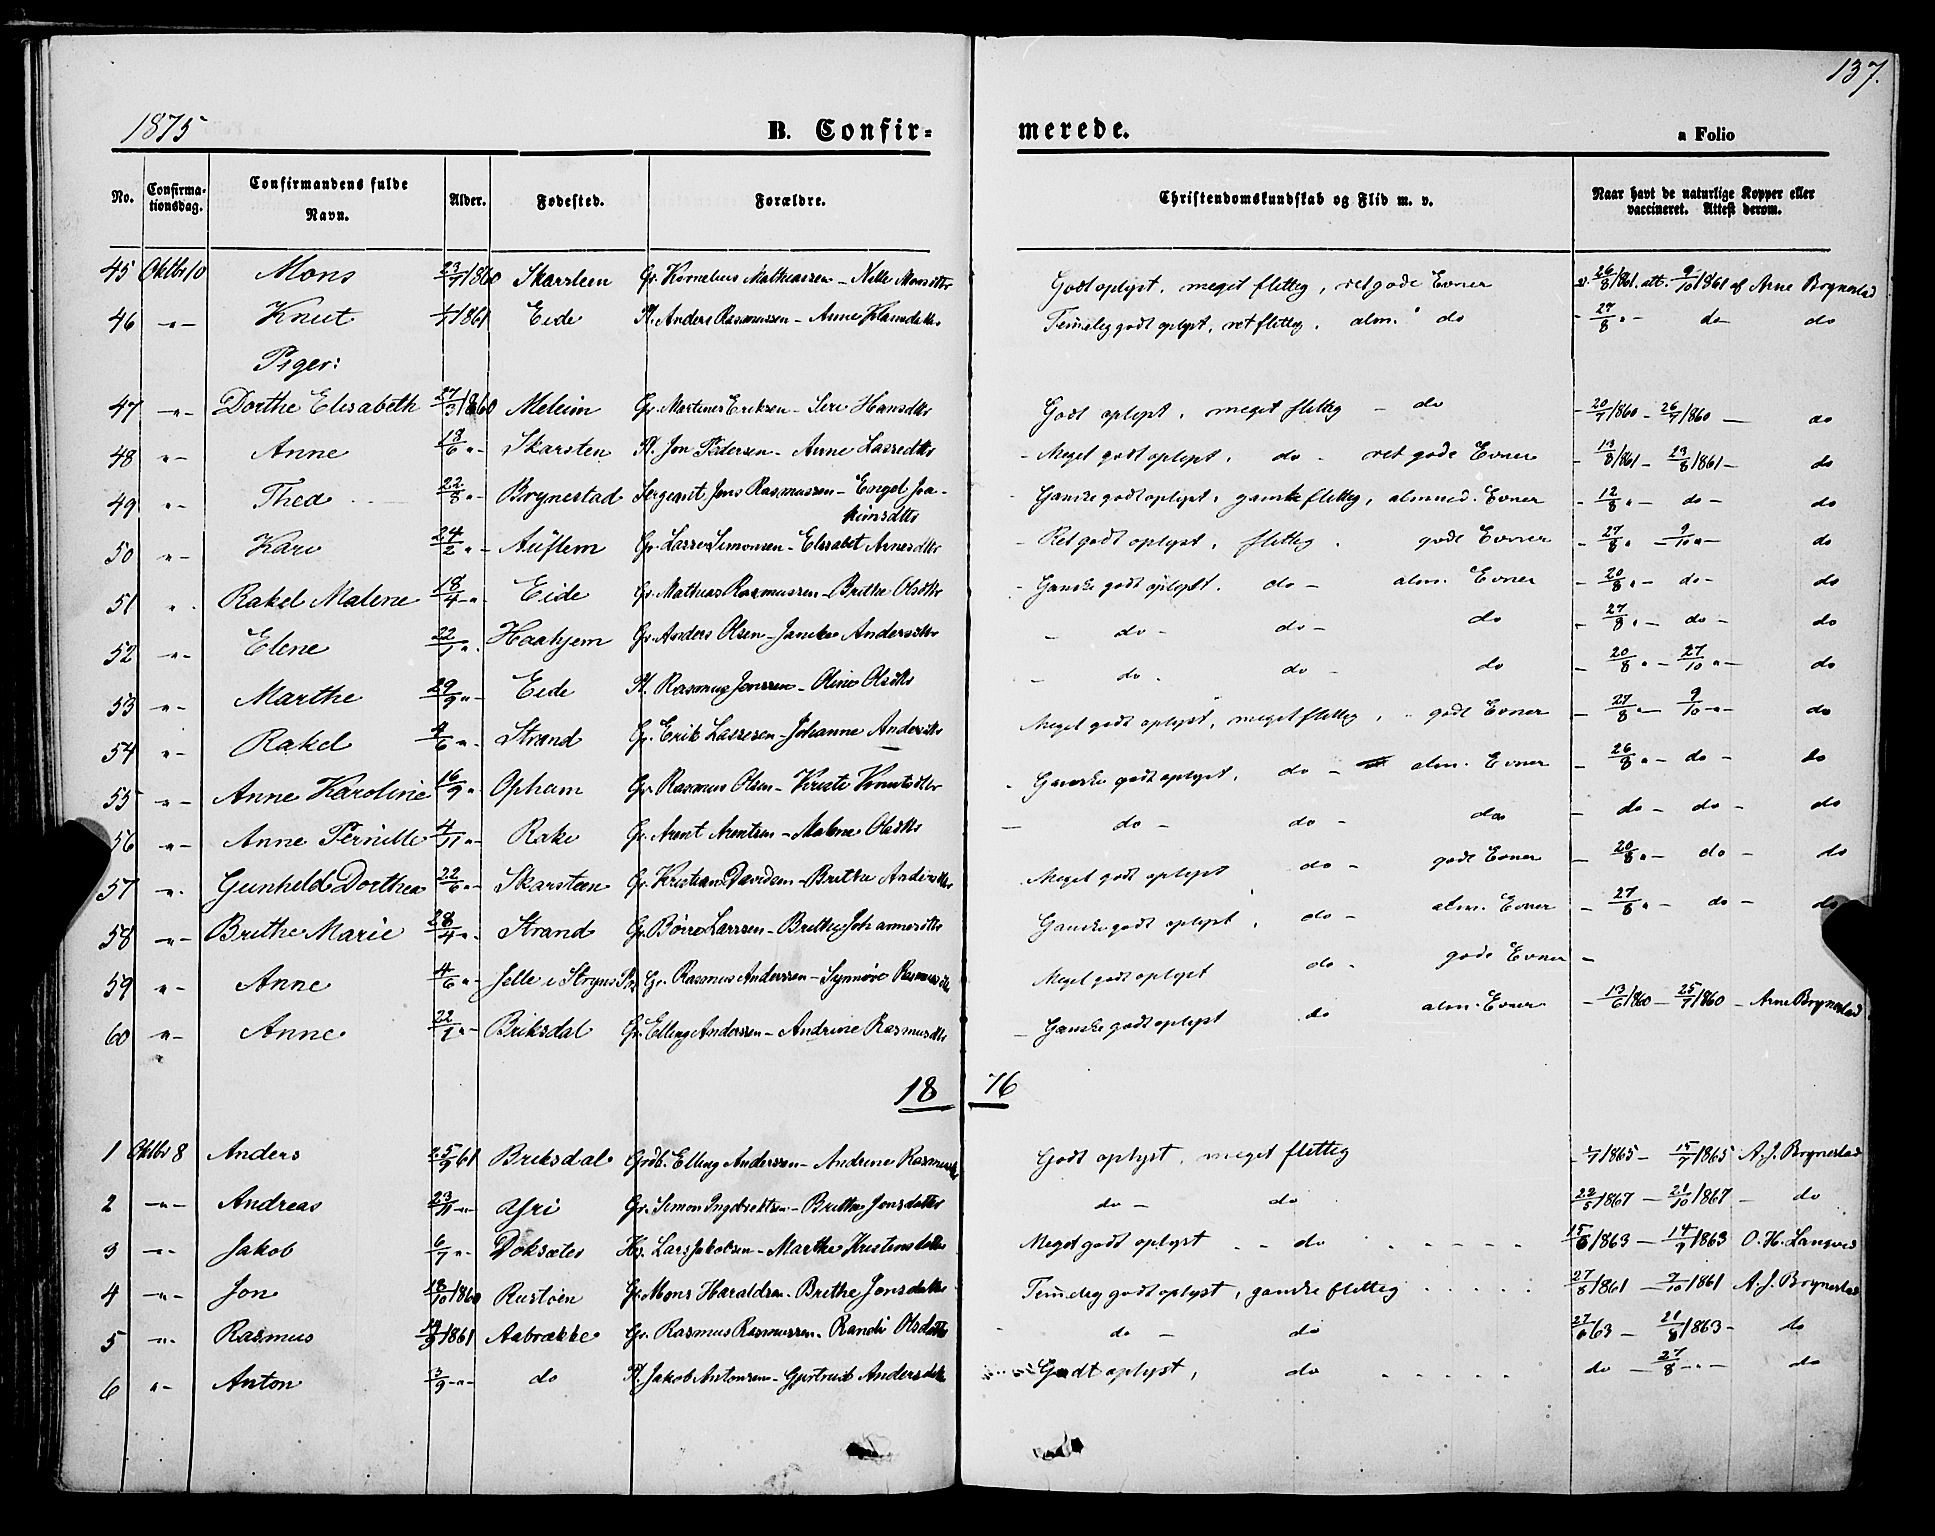 137.
1875 B. Confir- merede. a Folio
No. Confirma-tionsdag. Confirmandens fulde Navn. Alder. Fødested. Forældre. Christendomskundskab og Flid m. v. Naar havt de naturlige Kopper eller vaccineret. Attest derom.
45 Oktbr 10 Mons 23/7 1860 Skarsteen Gr. Kornelius Mathiassen - Monsdtr Godt oplyst, meget flittig, ret gode Evner v. 26/8 1861. att. 9/10 1861 af Arne Brynestad
46 -"- Knut 1861 Eide Pl. Anders Rasmussen - Anne Temmelig godt oplyst, ret flittig, alm. do - 27/8 " - do do
Piger:
47 -"- Dorthe Elisabeth 27/3 1860 Meleim Gr. Martinus Eriksen - Siri Hansdtr Godt oplyst, meget flittig - do - 20/7 1860 - 26/7 1860 - do
48 "- Anne 18/6 "- Skarsten Pl. Jon Pedersen - Anne Lassedtr - Meget godt oplyst, do - ret gode Evner - 13/8 1861 - 23/8 1861 - do
49 "- Thea 22/8 "- Brynestad Sergeant Jens Rasmussen - Engel Joa-
kimsdtr - Ganske godt oplyst, ganske flittig, almind. Evner - 12/8 " - do - do
50 -"- Kari 24/2 "- Auflem Gr. Lasse Simonsen - Elisabet Arnesdtr - Ret godt oplyst, flittig. gode Evner - 27/8 " - 9/10 "- do
51 ". Rakel Malene 18/4 -". Eide Gr. Mathias Rasmussen - Brithe Olsdtr - Ganske godt oplyst. do - alm. Evner - 20/8 " - do - do
52 -"- Elene 22/1 ". Haahjem Gr. Anders Olsen - Andersdtr - do - do - do - 27/8 " - do - do
53 -"- Marthe 29/9 "- Eide Pl. Rasmus Jonssen - Oline Olsdtr - do . do - do - 20/8 " - 27/10 "- do
54 "- Rakel 4/6 "- Strand Gr. Erik Lassesen - Johanne Andersdtr Meget godt oplyst, meget flittig, gode Evner - 27/8 " - 9/10 "- do
55 -"- Anne Karoline 16/9 ". Opheim Gr. Rasmus Olsen - Kristi Knutsdtr - Ganske godt oplyst, do - alm. Evner - 26/8 "- do - do
56 -"- Anne Pernille 4/11 "- Rake Gr. Arent Arentsen - Malene Olsdtr - do - do - do - do - do - do
57 "- Gunhild Dorthea 22/6 "- Skarsteen Gr. Kristian Davidsen - Brithe Andersdtr - Meget godt oplyst do - gode Evner - 20/8 "- do - do
58 -"- Brithe Marie 28/4 "- Strand Gr. Børre Larssen - Brithe Johannesdtr Ganske godt oplyst, do - alm. Evner - 27/8 "- do - do
59 "- Anne 4/6 "- Jelle i Stryns Gr. Rasmus Anderssen - Synnøve Rasmusdtr Meget godt oplyst do - gode Evner -
60 "- Anne "- Briksdal Gr. Elling Anderssen - Andrine Rasmusdtr - Ganske godt oplyst do alm. Evner - 13/6 1860 - 25/7 1860 - Arne Brynestad
18 76
1 Oktbr 8 Anders 25/9 61 Briksdal Grdb. Elling Anderssen - Andrine Rasmusdtr Godt oplyst, meget flittig 1865 - 15/7 1865 A. J. Brynestad
2 -"- Andreas 23/11 -"- Yri Gr. Simon Ingebrektsen - Brithe Jonsdatter do - do 22/5 1867 - 21/10 1867 - do
3 -"- Jakob 6/7 "- Doksæter Hs. Lars Jakobsen - Marthe Kristensdatter Meget godt oplyst - do 15/6 1863 - 14/9 1863 O. H. Langved
4 -"- Jon 18/10 1860 Rustøen Gr. Mons Haraldsen - Brithe Jonsdatter Temmelig godt oplyst, ganske flittig 27/8 1861 - 9/10 1861 A. J. Brynestad
5 -"- Rasmus 1861 Aabrække Gr. Rasmus Rasmussen - Randi Olsdatter - do - do 63 - 21/8 1863 - do
6 "- Anton 3/9 -"- do Pl. Jakob Antonsen - Gjertrud Andersdatter Godt oplyst, do do - 27/8 -"- do